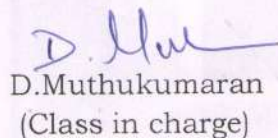 D. Mu
D.Muthukumaran
(Class in charge)